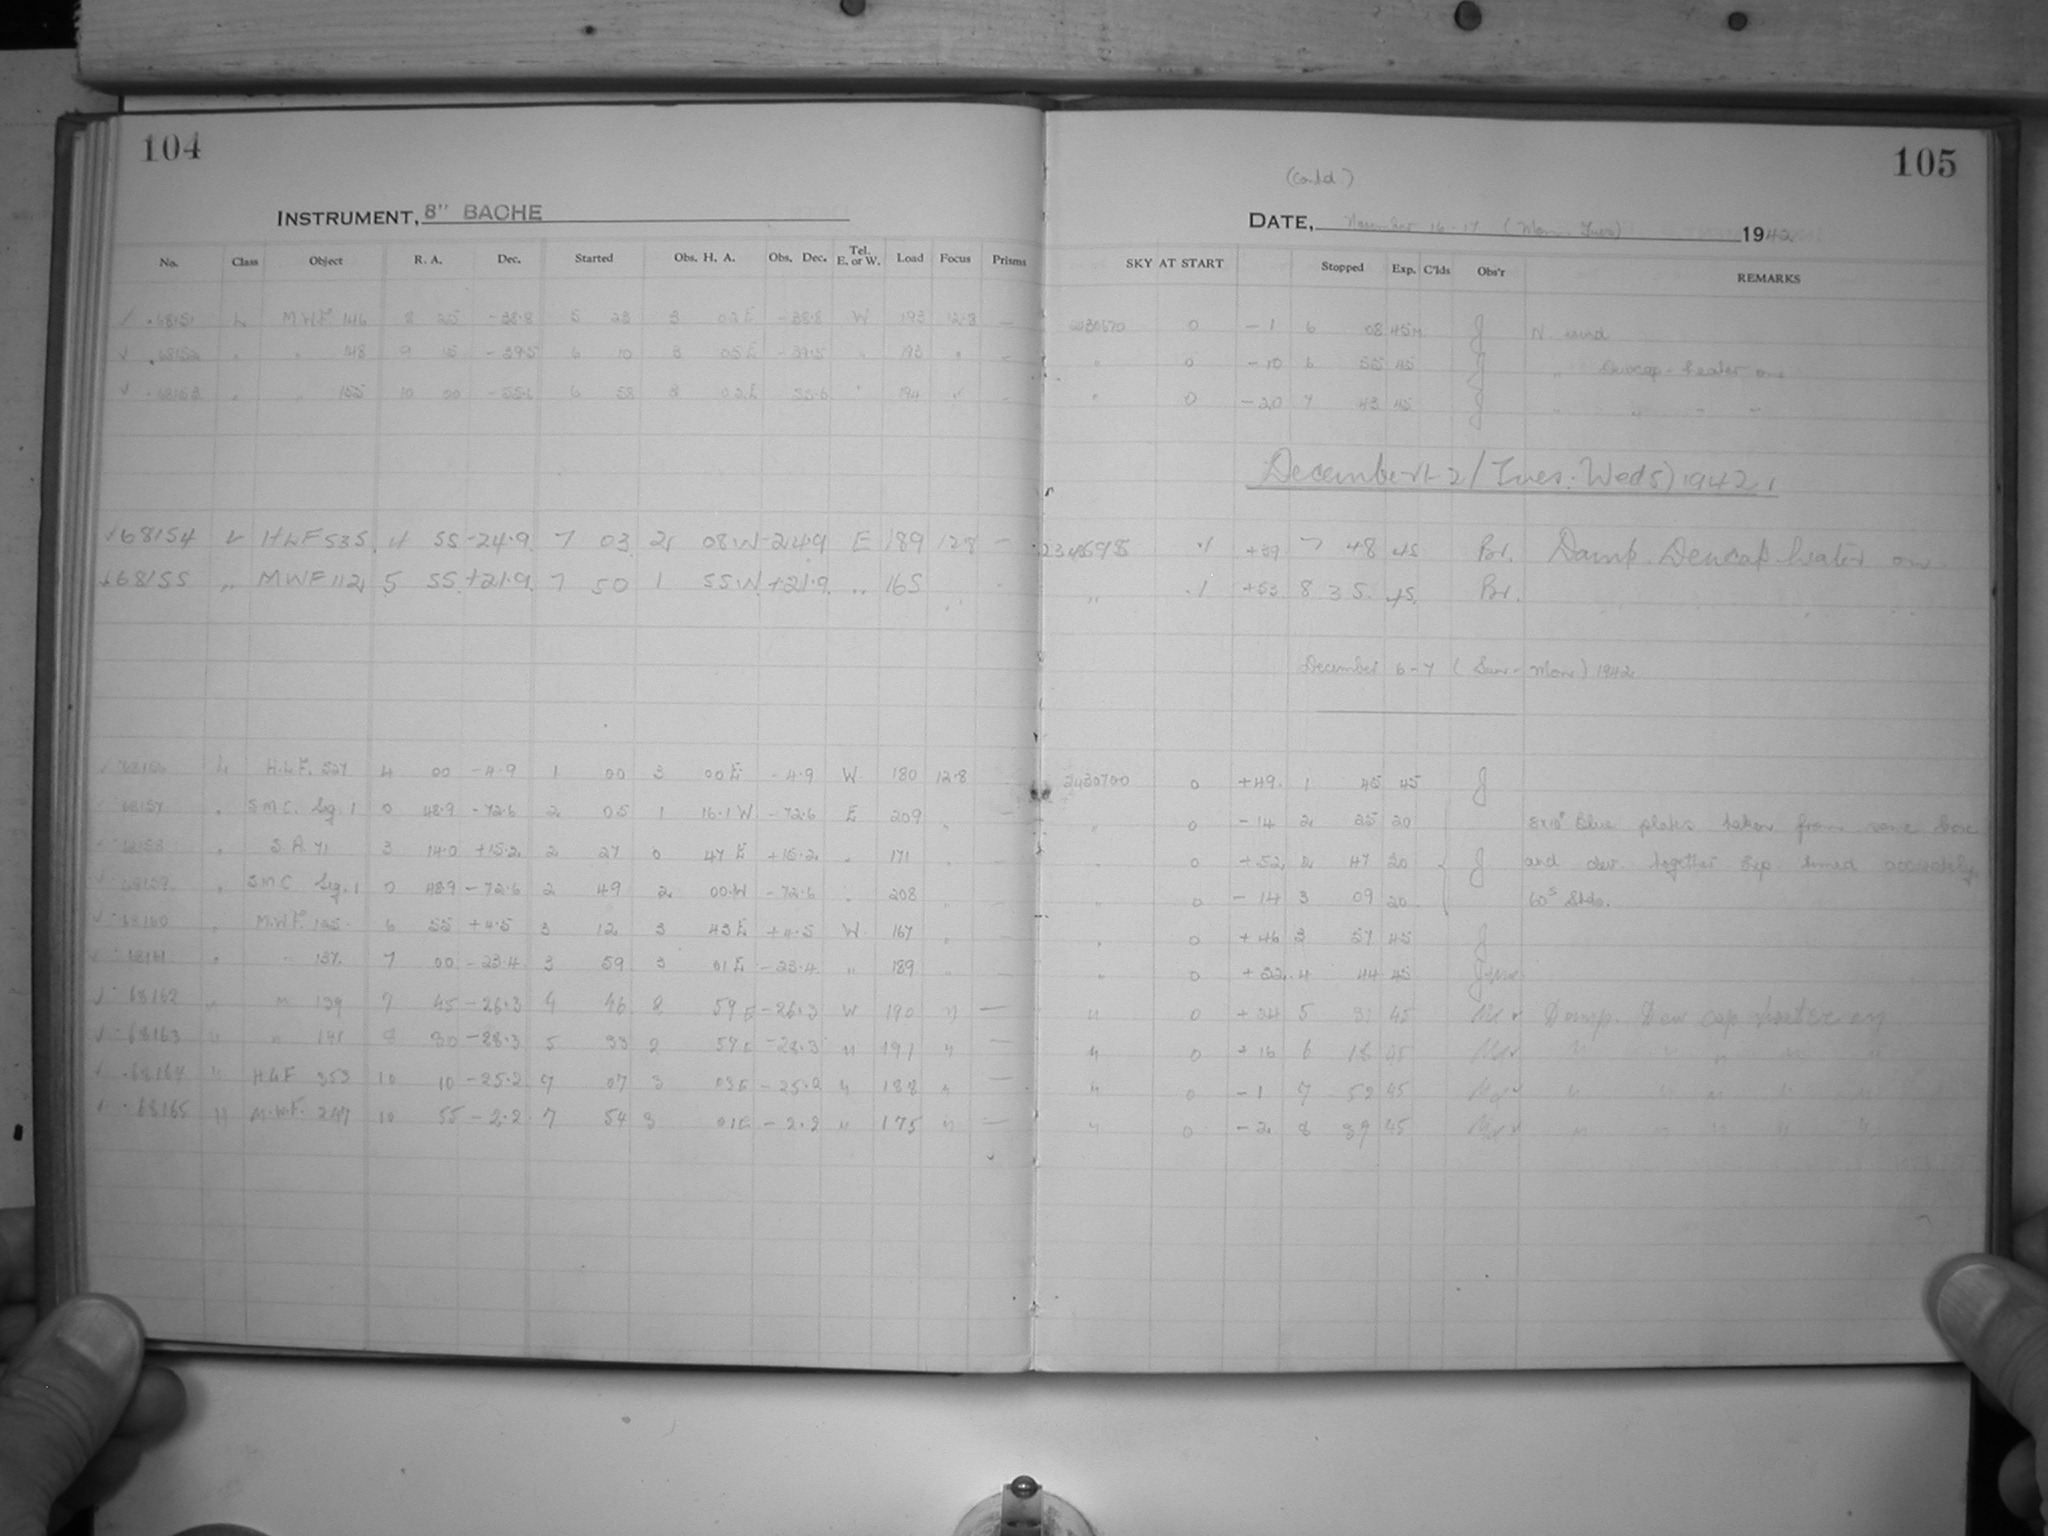 104
INSTRUMENT, 8" BACHE
No. Class Object R. A. Dec. Started Obs. H. A. Obs. Dec. Tel. E. or W. Load Focus Prisms
68151 L M.W.F. 146 8 25 -38.8 5 23 3 02 E -38.8 W 193 12.8 —
68152 " " 148 9 15 -39.5 6 10 3 05 E -39.5 " 193 " —
68153 " " 155 10 00 -55.6 6 58 3 02 E 55.6 " 194 —
68154 L HLF 535 4 55 -24.9 7 03 2 08 W -24.9 E 189 128 —
68155 " MWF 112 5 55 +21.9 7 50 1 55 W +21.9 " 165
68156 L H.L.F. 4 00 -4.9 1 00 3 00 E -4.9 W 180 12.8
68157 " S.M.C. Sq. 1 0 48.9 -72.6 2 05 1 16.1 W -72.6 E 209 " —
68158 " S.A. 71 3 14.0 +15.2 2 27 0 47 E +15.2 " 171
68159 " S.M.C. Sq. 1 0 48.9 -72.6 2 49 2 00 W -72.6 " 208 "
68160 " M.W.F. 125 6 55 +4.5 3 12 3 43 E +4.5 W 167 "
68161 " " 137 7 00 -23.4 3 59 3 01 E -23.4 " 189
68162 " " 139 7 45 -26.3 4 46 2 59 E -26.3 W 190 " —
68163 " " 141 8 30 -28.3 5 33 2 59 E -28.3 " 191 " —
68164 " HLF 353 10 10 -25.2 7 07 3 03 E -25.2 " 188 " —
68165 " M.W.F. 10 55 -2.2 7 54 3 01 E -2.2 " 175 " —
105
(Contd)
DATE, November 16-17 (Mon. Tues) 1942
SKY AT START Stopped Exp. C'lds Obs'r REMARKS
2430670 0 -1 6 08 45m J N. wind
" 0 -10 6 55 45 J " Dewcap-heater on
" 0 -20 7 43 45 J " " " "
December 1-2 (Tues. Weds) 1942
+39 7 48 45 Br. Damp. Dewcap heater on
" +53 8 35 45 Br.
December 6-7 (Sun-Mon) 1942
2430700 0 +49 1 45 45 J
" 0 -14 2 25 20 8x10" Blue plates taken from same box
" 0 +52 2 47 20 J and dev. together Exp. timed accurately
" 0 -14 3 09 20 60s Stds.
" 0 +46 3 57 45 J
" 0 +22 4 44 45
" 0 +24 5 31 45 Damp. Dew cap heater on
" 0 +16 6 18 45 " " " " "
" 0 -1 7 52 45 " " " " "
" 0 -2 8 39 45 " " " " "